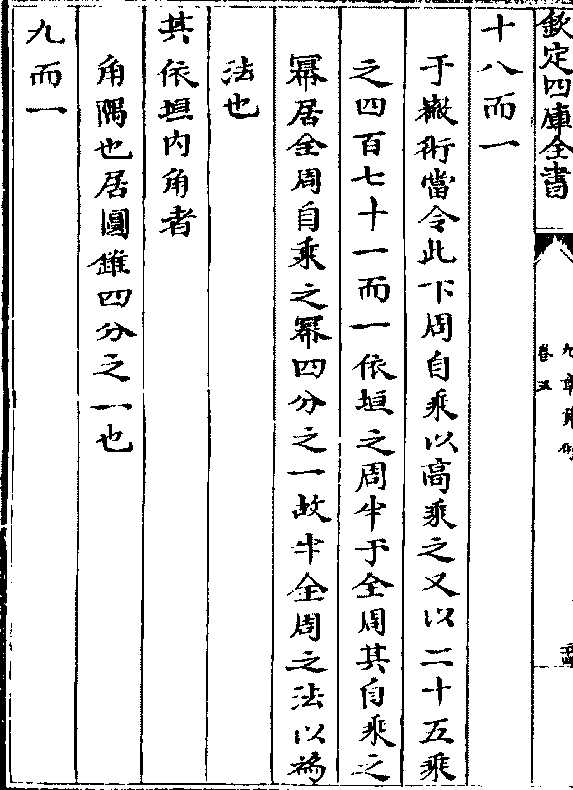 欽定四庫全書
九章算術
卷五
十八而一
于徽術當令此下周自乘以高乘之又以二十五乘
之四百七十一而一依垣之周半于全周其自乘之
冪居全周自乘之冪四分之一故半全周之法以為
法也
其依垣内角者
角隅也居圓錐四分之一也
九而一